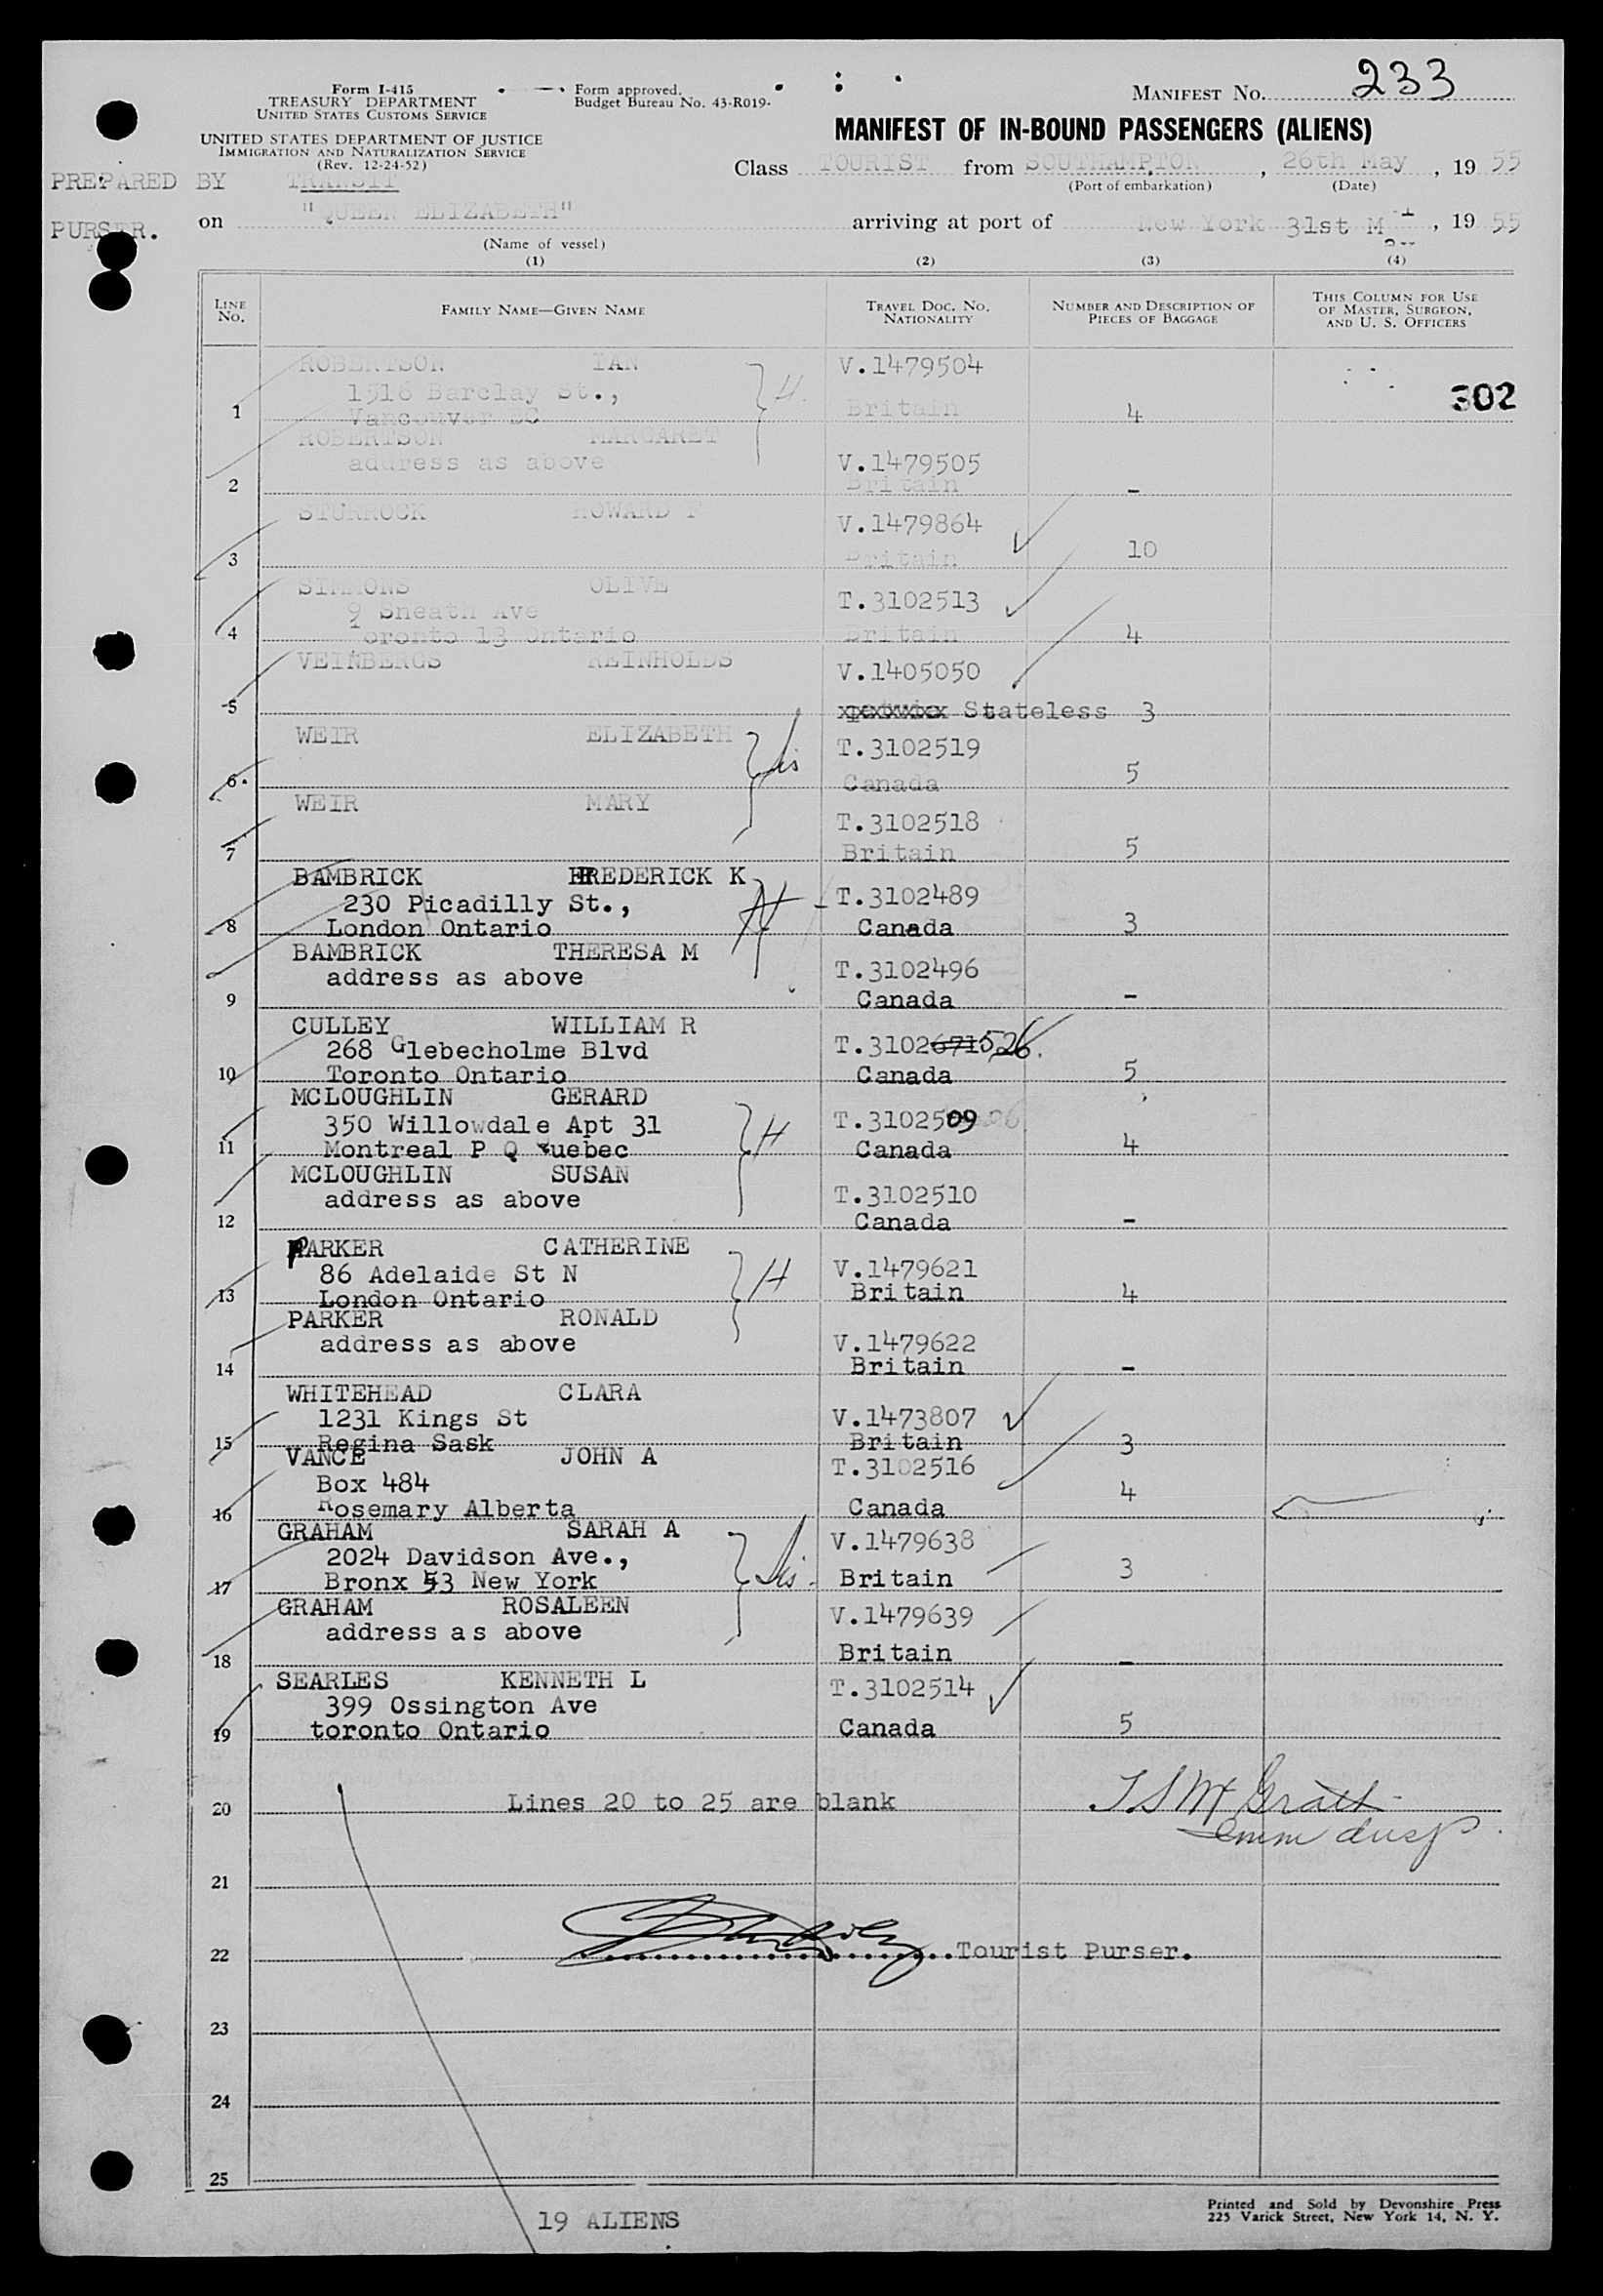 Form I-415
TREASURY DEPARTMENT
UNITED STATES CUSTOMS SERVICE
UNITED STATES DEPARTMENT OF JUSTICE
IMMIGRATION AND NATURALIZATION SERVICE
(Rev. 12-24-52)
Form approved.
Budget Bureau No. 43-R019-
MANIFEST NO. 233
MANIFEST OF IN-BOUND PASSENGERS (ALIENS)
PREPARED BY TRANSIT
PURSER.
Class TOURIST from SOUTHAMPTON, 26th May, 19 55
(Port of embarkation) (Date)
on "QUEEN ELIZABETH" arriving at port of New York 31st May, 19 55
(Name of vessel)
(1) (2) (3) (4)
LINE NO. FAMILY NAME—GIVEN NAME TRAVEL DOC. NO. NATIONALITY NUMBER AND DESCRIPTION OF PIECES OF BAGGAGE THIS COLUMN FOR USE OF MASTER, SURGEON, AND U. S. OFFICERS
302
ROBERTSON IAN V.1479504
1516 Barclay St.,
1 Vancouver BC Britain 4
H
ROBERTSON MARGARET
address as above V.1479505
2 Britain -
STURROCK HOWARD T V.1479864
3 Britain 10
SIMMONS OLIVE T.3102513
9 Sneath Ave
4 Toronto 13 Ontario Britain 4
VEINBERGS REINHOLDS V.1405050
5 Stateless 3
WEIR ELIZABETH T.3102519
6 Canada 5
WEIR MARY T.3102518
7 Britain 5
BAMBRICK FREDERICK K T.3102489
230 Picadilly St.,
8 London Ontario Canada 3
H
BAMBRICK THERESA M
address as above T.3102496
9 Canada -
CULLEY WILLIAM R
268 Glebecholme Blvd T.3102671526.
10 Toronto Ontario Canada 5
MCLOUGHLIN GERARD
350 Willowdale Apt 31 T.3102509
11 Montreal P Q Quebec Canada 4
H
MCLOUGHLIN SUSAN
address as above T.3102510
12 Canada -
PARKER CATHERINE
86 Adelaide St N V.1479621
13 London Ontario Britain 4
H
PARKER RONALD
address as above V.1479622
14 Britain -
WHITEHEAD CLARA
1231 Kings St V.1473807
15 Regina Sask Britain 3
VANCE JOHN A T.3102516
Box 484
16 Rosemary Alberta Canada 4
GRAHAM SARAH A V.1479638
2024 Davidson Ave.,
17 Bronx 53 New York Britain 3
GRAHAM ROSALEEN V.1479639
address as above
18 Britain -
SEARLES KENNETH L T.3102514
399 Ossington Ave
19 toronto Ontario Canada 5
20 Lines 20 to 25 are blank
21
22 Tourist Purser.
23
24
25
19 ALIENS
Printed and Sold by Devonshire Press
225 Varick Street, New York 14, N. Y.